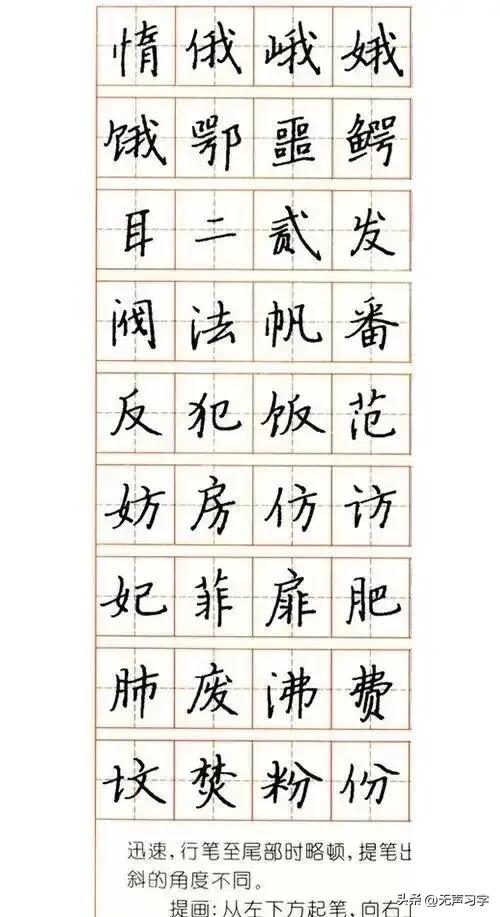 惰俄峨娥
饿鄂噩鳄
耳二贰发
阀法帆番
反犯饭范
妨房仿访
妃菲扉肥
肺废沸费
坟焚粉份
迅速,行笔至尾部时略顿,提笔出
斜的角度不同。
提画:从左下方起笔,向右
头条@无声习字